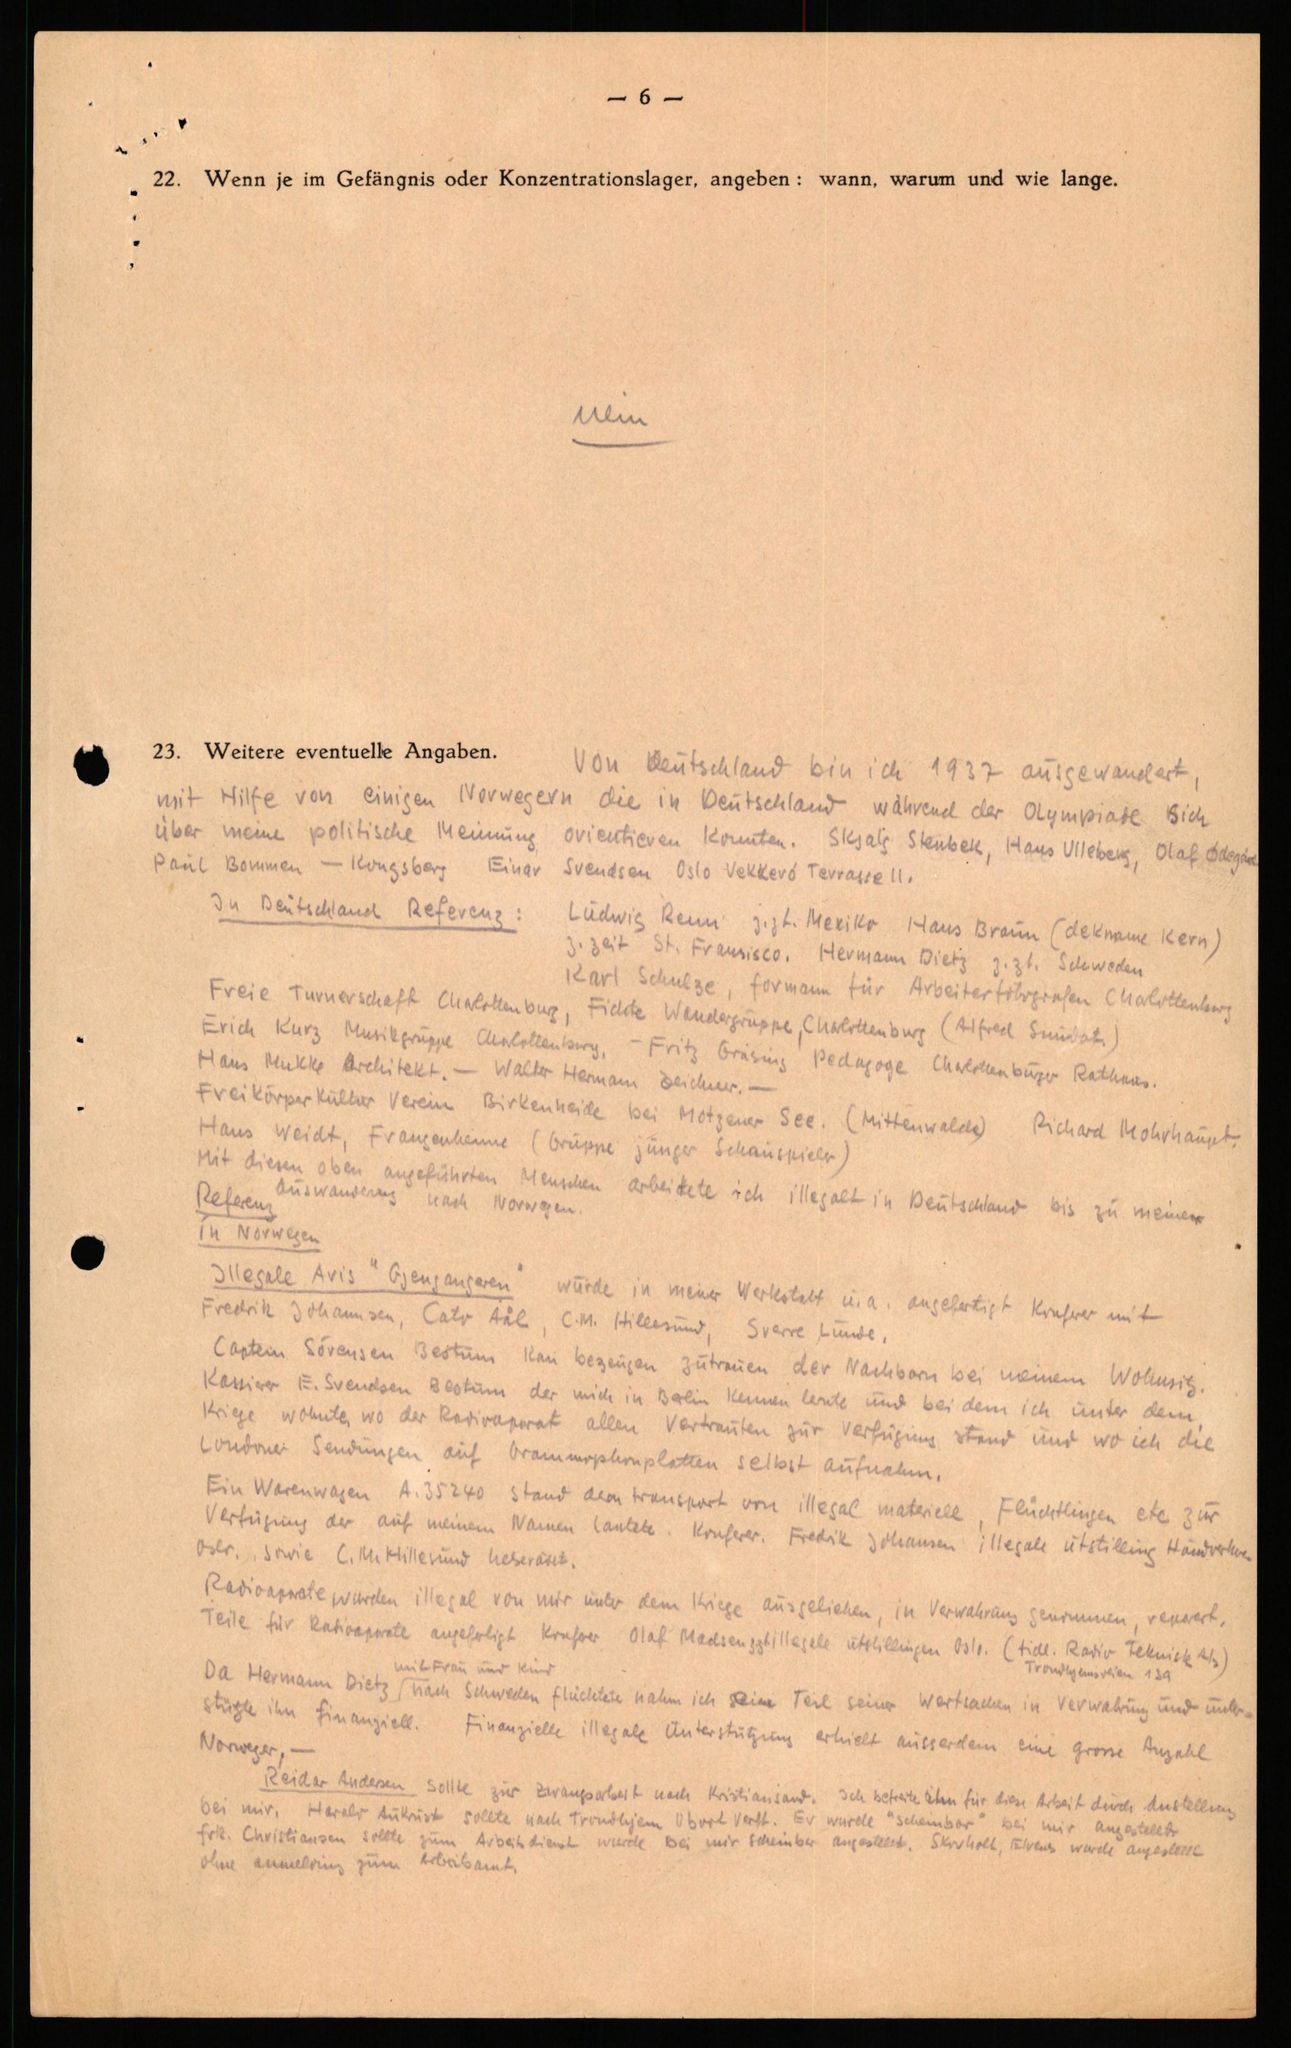 — 6 —
22. Wenn je im Gefängnis oder Konzentrationslager, angeben: wann, warum und wie lange.
Nein
23. Weitere eventuelle Angaben. Von Deutschland bin ich 1937 ausgewandert,
mit Hilfe von einigen Norwegern die in Deutschland während der Olympiade sich
über meine politische Meinung orientieren konnten. Skjalg Stenbek, Hans Ulleberg, Olaf Ødegård
Paul Bommen — Kongsberg Einar Svendsen Oslo Vekkerö Terrasse 11.
In Deutschland Referenz: Ludwig Renn z.zt. Mexiko Hans Braun (dekname Kern)
z.zeit St. Fransisco. Hermann Dietz z.zt. Schweden
Karl Schulze, formann für Arbeiterfotografen Charlottenburg
Freie Turnerschaft Charlottenburg, Fichte Wandergruppe, Charlottenburg (Alfred
Erich Kurz Musikgruppe Charlottenburg, — Fritz Gräsing Pedagoge Charlottenburger Rathaus.
Hans Mukke Architekt. — Walter Hermann Zeichner. —
Freikörperkultur Verein Birkenheide bei Motzener See. (Mittenwalde) Richard Mohrhaupt.
Hans Weidt, (Gruppe junger Schauspieler)
Mit diesen oben angeführten Menschen arbeitete ich illegalt in Deutschland bis zu meiner
Auswanderung nach Norwegen.
Referenz
in Norwegen
Illegale Avis "Gjengangeren" wurde in meiner Werkstatt u.a. angefertigt Konferer mit
Fredrik Johannsen, Cato Aål, C.M. Hillesund, Sverre Lunde.
Captein Sörensen Bestum kan bezeugen zutrauen der Nachbarn bei meinem Wohnsitz.
Kassierer E. Svendsen Bestum der mich in Berlin kennen lernte und bei dem ich unter dem
Kriege wohnte, wo der Radioaparat allen Vertrauten zur Verfügung stand und wo ich die
Londoner Sendungen auf Grammophonplatten selbst aufnahm.
Ein Warenwagen A.35240 stand dem transport von illegal materiell, Flüchtlingen etc zur
Verfügung der auf meinem Namen lautete. Konferer. Fredrik Johansen illegale utstilling
Oslo., sowie C.M. Hillesund
Radioaparate wurden illegal von mir unter dem Kriege ausgeliehen, in Verwahrung genommen, reparert.
Teile für Radioaparate angefertigt Konferer Olaf Madsen z.zt illegale utstillingen Oslo. (tidl. Radio Teknisk A/s)
Trondhjemsveien 139
Da Hermann Dietz mit Frau und Kind nach Schweden flüchtete nahm ich seine Teil seiner Wertsachen in Verwahrung und unter-
stüzte ihn finanziell. Finanzielle illegale Unterstützung erhielt ausserdem eine grosse Anzahl
Norweger, —
Reidar Andersen sollte zur Zwangsarbeit nach Kristiansand. Ich befreite ihm für diese Arbeit durch Anstellung
bei mir. Harald Aukrust sollte nach Trondhjem Ubort Verft. Er wurde "scheinbar" bei mir angestellt
frk. Christiansen sollte zum Arbeitsdienst wurde bei mir scheinbar angestellt. wurde angestellt
ohne anmeldung zum Arbeitsamt.